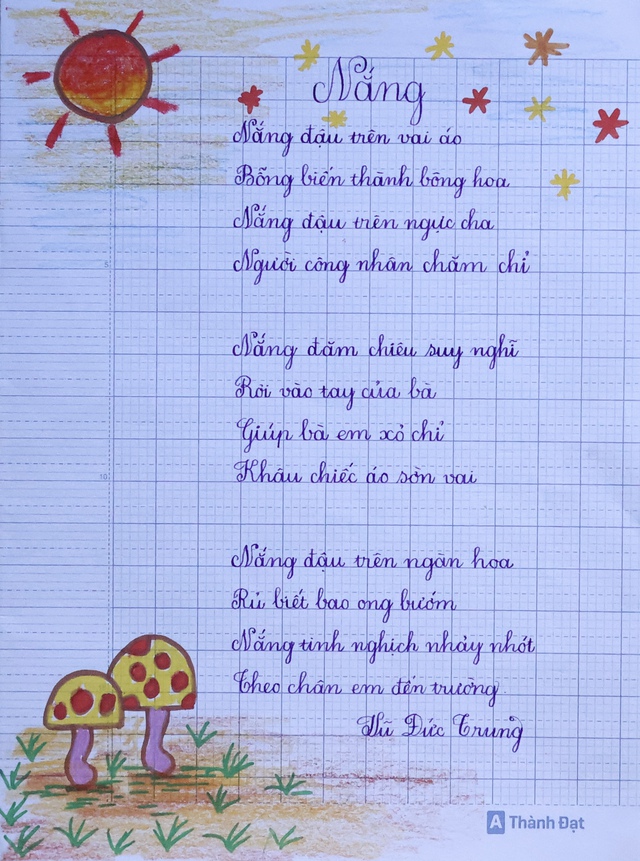 Nắng
Nắng đậu trên vai áo
Bỗng biến thành bông hoa
Nắng đậu trên ngực cha
Người công nhân chăm chỉ
Nắng đăm chiêu suy nghĩ
Rơi vào tay của bà
Giúp bà em xỏ chỉ
Khâu chiếc áo sờn vai
Nắng đậu trên ngàn hoa
Rủ biết bao ong bướm
Nắng tinh nghịch nhảy nhót
Theo chân em đến trường
Vũ Đức Trung
5
10
A Thành Đạt